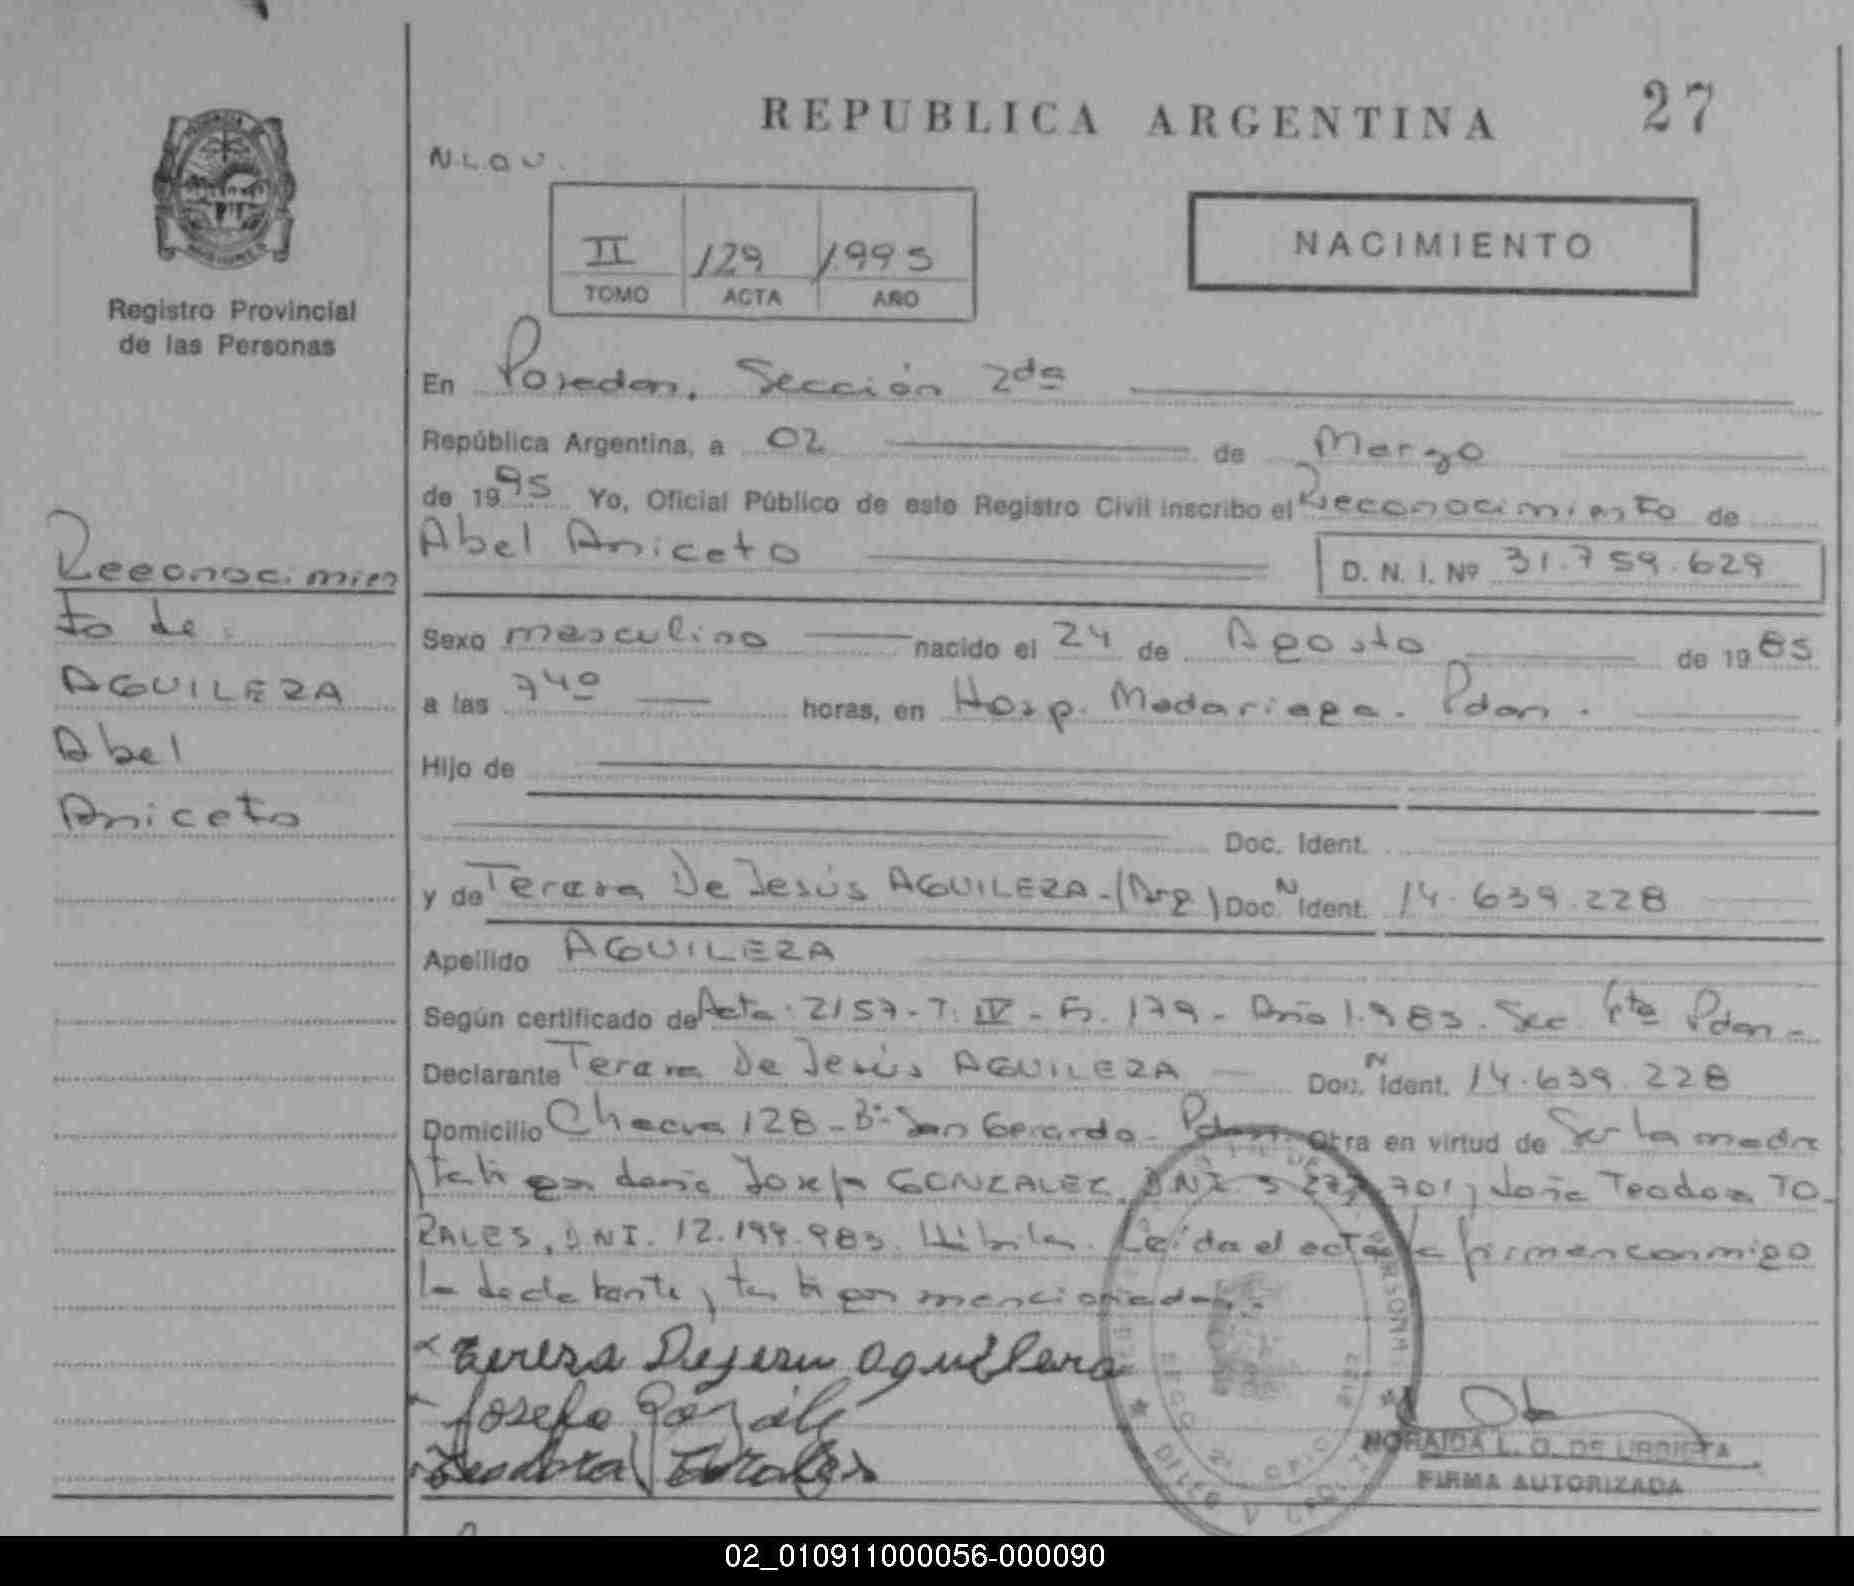 REPUBLICA ARGENTINA
27
N.L.Q.V.
II 129 1.995
TOMO ACTA AÑO
NACIMIENTO
Registro Provincial
de las Personas
En Posadas. Sección 2da
República Argentina, a 02 de Marzo
de 1995 Yo, Oficial Público de este Registro Civil inscribo el Reconocimiento de
Abel Aniceto
D. N. I. Nº 31.759.629
Reconocimien
to de:
AGUILERA
Abel
Aniceto
Sexo masculino nacido el 24 de Agosto de 1985
a las 740 horas, en Hosp. Madariaga. Pdas.
Hijo de
Doc. Ident.
y de Teresa De Jesús AGUILERA-(Arg) Doc. N Ident. 14.639.228
Apellido AGUILERA
Según certificado de Acta 2157-T. IV - F. 179 - Año 1.985. Sec. 4ta Pdas-
Declarante Teresa De Jesús AGUILERA Doc. N Ident. 14.639.228
Domicilio Chacra 128 - Bº San Gerardo - Pdas. Obra en virtud de Ser la madre
testigos doña Josefa GONZALEZ, DNI. 701, doña Teodora TO-
RALES, DNI. 12.199.985. Hábiles. Leída el acta la firman conmigo
la declarante y testigos mencionados.
x tereza Dejesu aguilera
Josefa Gonzále
Teodora Torales
NORAIDA L. O. DE URRIETA
FIRMA AUTORIZADA
02_010911000056-000090